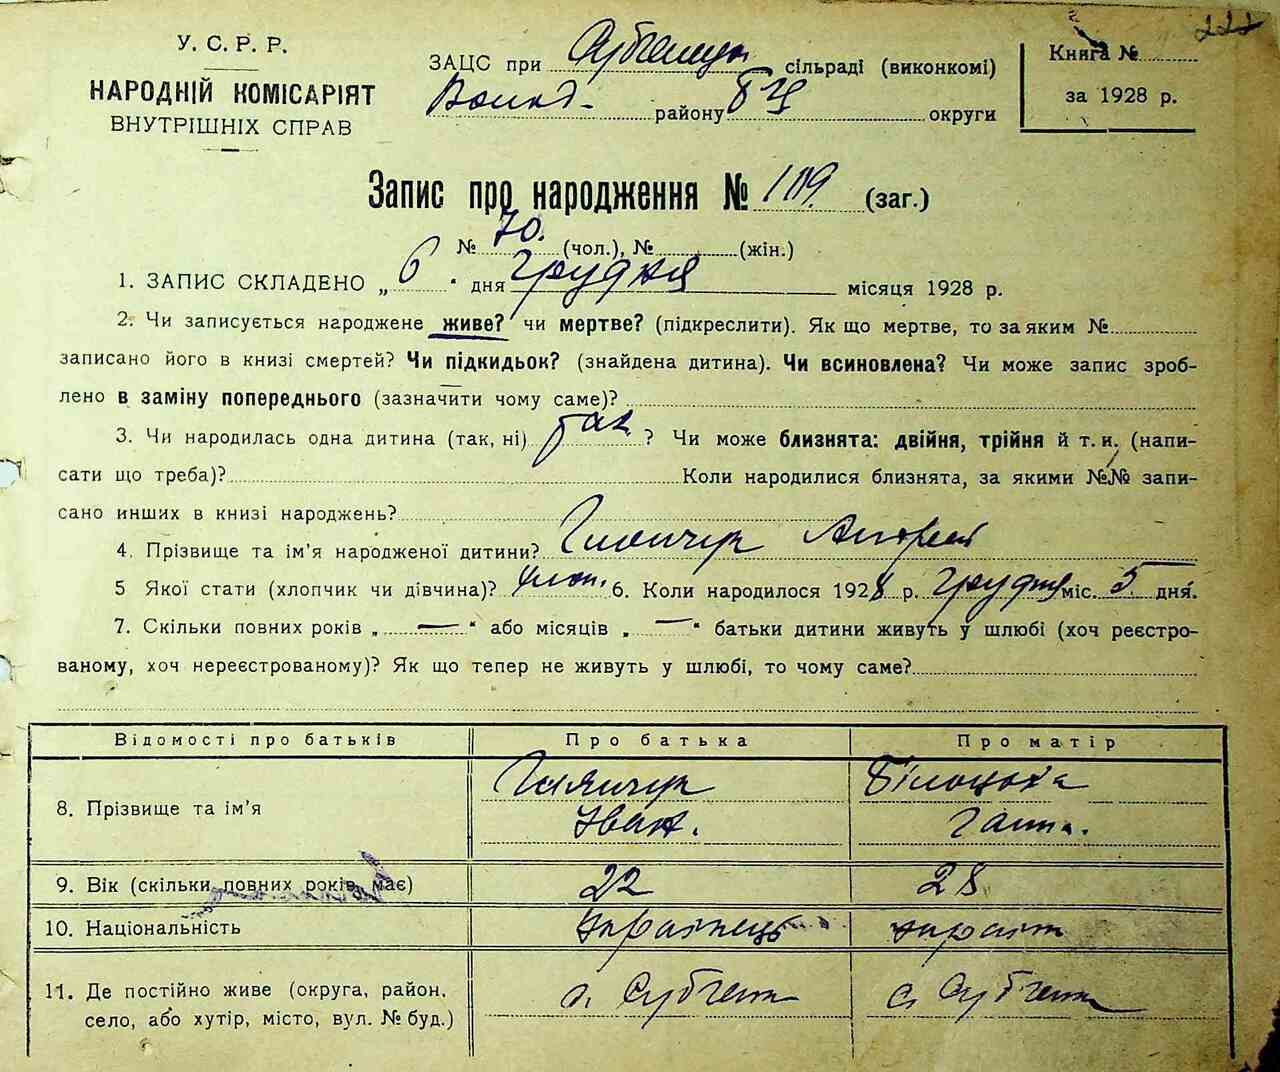 222
У. С. Р. Р.
НАРОДНІЙ КОМІСАРІЯТ
ВНУТРІШНІХ СПРАВ
ЗАЦС при сільраді (виконкомі)
району БЦ округи
Книга №
за 1928 р.
Запис про народження № 119. (заг.)
№ 70. (чол.), № (жін.)
1. ЗАПИС СКЛАДЕНО „ 6 " дня Грудня місяця 1928 р.
2. Чи записується народжене живе? чи мертве? (підкреслити). Як що мертве, то за яким №
записано його в книзі смертей? Чи підкидьок? (знайдена дитина). Чи всиновлена? Чи може запис зроб-
лено в заміну попереднього (зазначити чому саме)?
3. Чи народилась одна дитина (так, ні) так ? Чи може близнята: двійня, трійня й т. и. (напи-
сати що треба)? Коли народилися близнята, за якими №№ запи-
сано инших в книзі народжень?
4. Прізвище та ім'я народженої дитини? Андрей
5 Якої стати (хлопчик чи дівчина)? хлоп. 6. Коли народилося 1928 р. Грудня міс. 5 дня.
7. Скільки повних років „ — " або місяців „ — " батьки дитини живуть у шлюбі (хоч реєстро-
ваному, хоч нереєстрованому)? Як що тепер не живуть у шлюбі, то чому саме?
Відомості про батьків Про батька Про матір
8. Прізвище та ім'я
Іван. Ганна.
9. Вік (скільки повних років має) 22 28
10. Національність українець україн
11. Де постійно живе (округа, район,
село, або хутір, місто, вул. № буд.)
с. с.